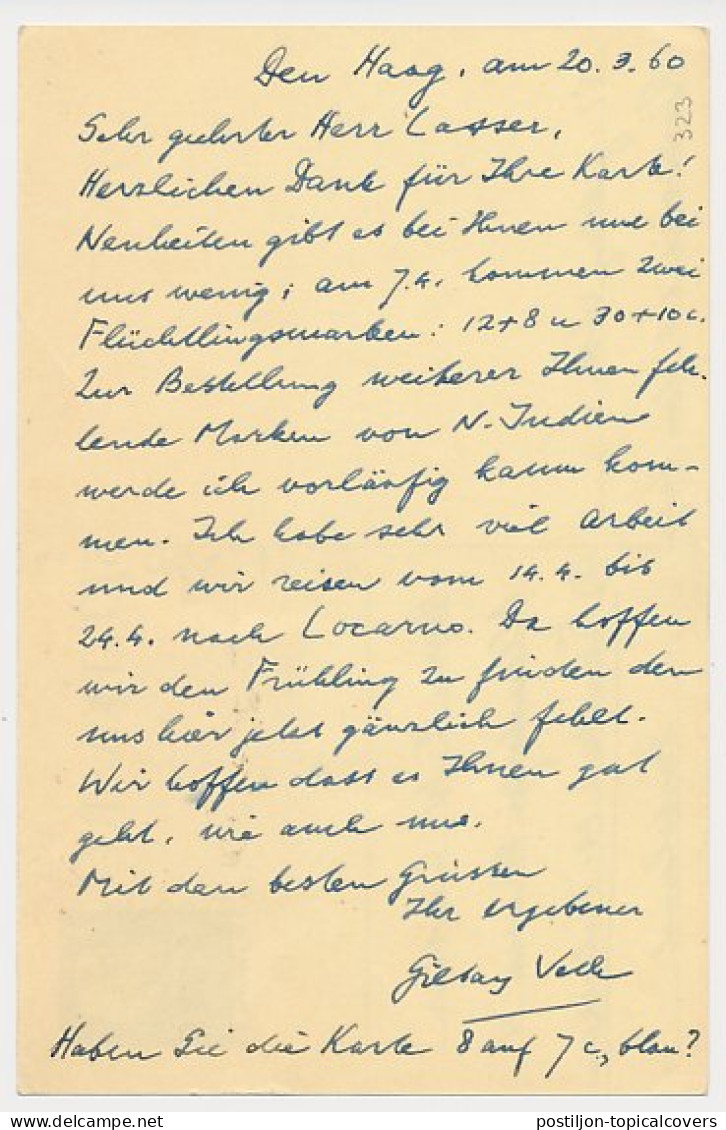 Den Haag, am 20.3.60
323
Sehr geehrter Herr Lasser,
Herzlichen Dank für Ihre Karte!
Neuheiten gibt es bei Ihnen und bei
uns wenig; am 7.4. kommen zwei
Flüchtlingsmarken: 12+8 u 30+10c.
Zur Bestellung weiterer Ihnen feh-
lende Marken von N. Indien
werde ich vorläufig kaum kom-
men. Ich habe sehr viel Arbeit
und wir reisen vom 14.4. bis
24.4. nach Locarno. Da hoffen
wir den Frühling zu finden der
uns hier jetzt gänzlich fehlt.
Wir hoffen dass es Ihnen gut
geht, wie auch uns.
Mit den besten Grüssen
Ihr ergebener
Haben Sie die Karte 8 auf 7 c, blau?
postiljon-topicalcovers